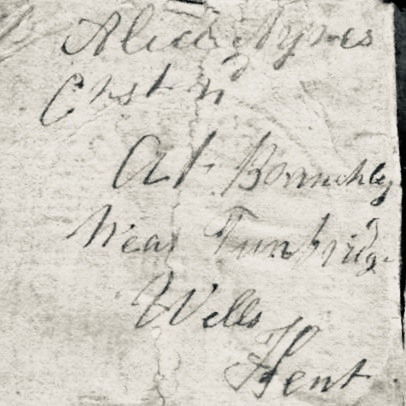 Alice Ayres
Chstnd
At Brenchley
Near Tunbridge
Wells
Kent